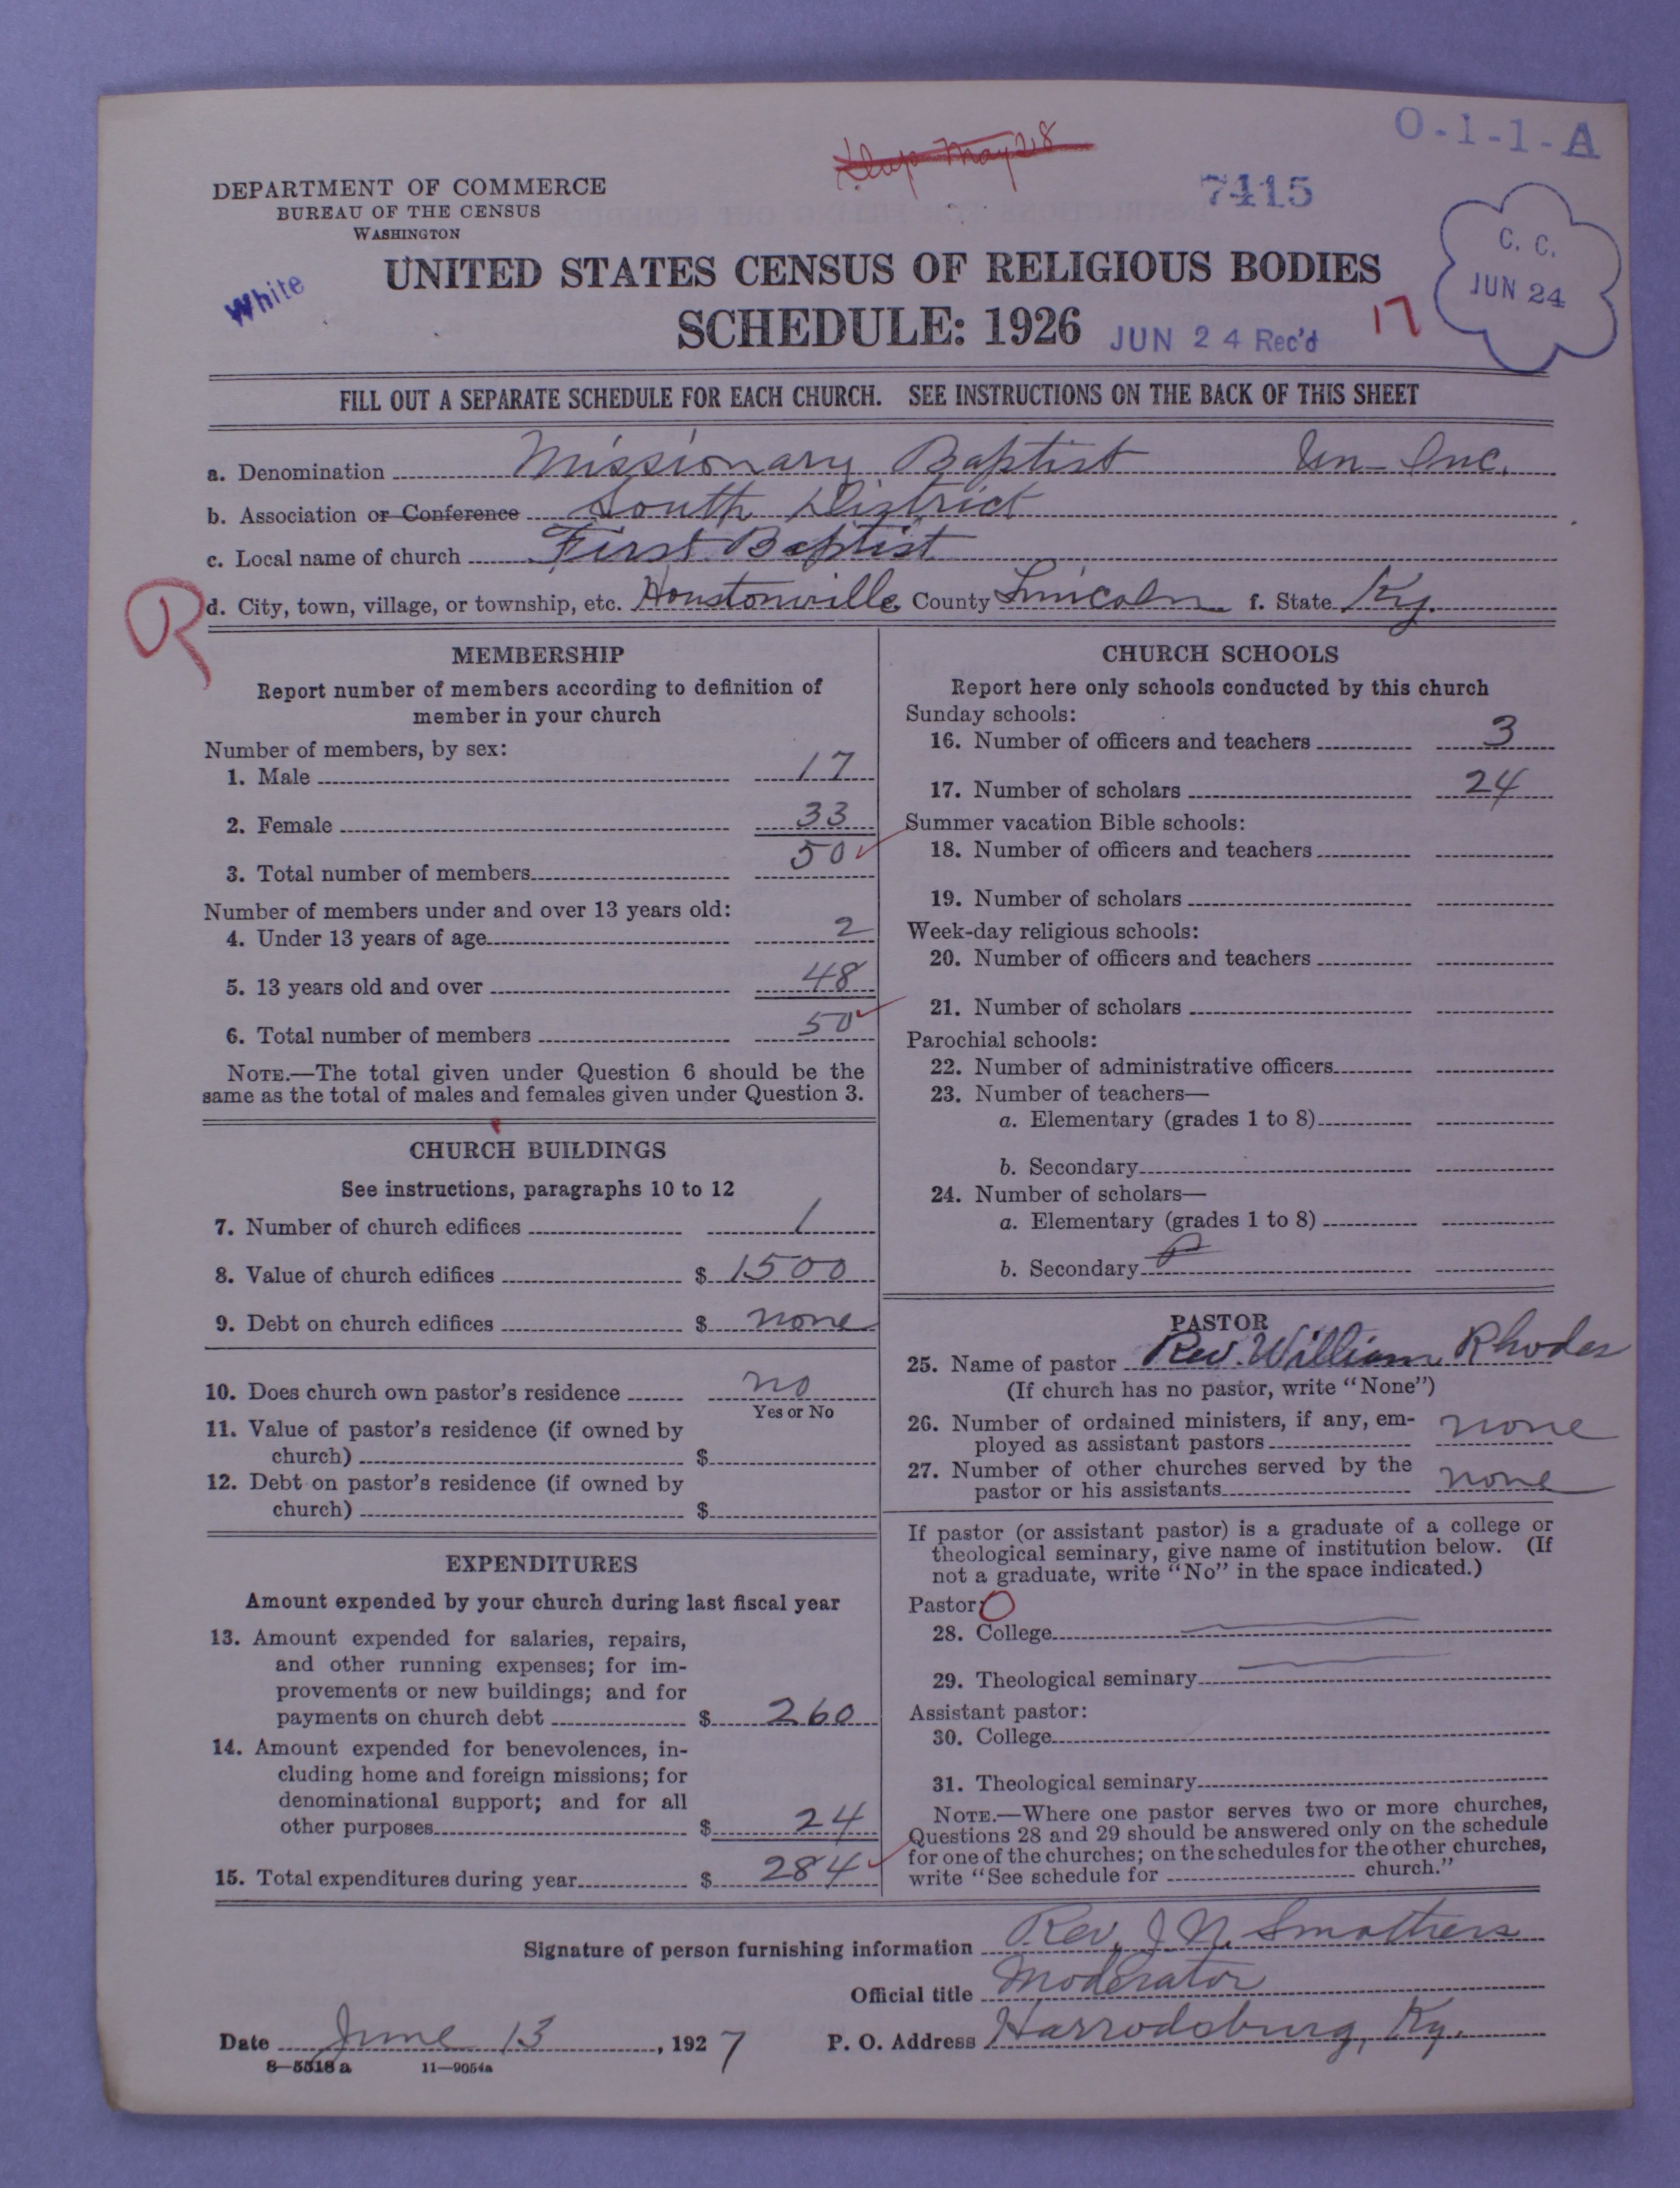 O-1-1-A
May 28
7415
DEPARTMENT OF COMMERCE
BUREAU OF THE CENSUS
WASHINGTON
White
C. C.
JUN 24
UNITED STATES CENSUS OF RELIGIOUS BODIES
SCHEDULE: 1926
JUN 24 Rec'd
17
FILL OUT A SEPARATE SCHEDULE FOR EACH CHURCH. SEE INSTRUCTIONS ON THE BACK OF THIS SHEET
a. Denomination Missionary Baptist Un-Inc.
b. Association or Conference South District
c. Local name of church First Baptist
R
d. City, town, village, or township, etc. Houstonville County Lincoln f. State Ky.
MEMBERSHIP
Report number of members according to definition of
member in your church
Number of members, by sex:
1. Male 17
2. Female 33
3. Total number of members 50
Number of members under and over 13 years old:
4. Under 13 years of age 2
5. 13 years old and over 48
6. Total number of members 50
NOTE.—The total given under Question 6 should be the
same as the total of males and females given under Question 3.
CHURCH BUILDINGS
See instructions, paragraphs 10 to 12
7. Number of church edifices 1
8. Value of church edifices $ 1500
9. Debt on church edifices $ none
10. Does church own pastor's residence no
Yes or No
11. Value of pastor's residence (if owned by
church) $
12. Debt on pastor's residence (if owned by
church) $
EXPENDITURES
Amount expended by your church during last fiscal year
13. Amount expended for salaries, repairs,
and other running expenses; for im-
provements or new buildings; and for
payments on church debt $ 260
14. Amount expended for benevolences, in-
cluding home and foreign missions; for
denominational support; and for all
other purposes $ 24
15. Total expenditures during year $ 284
CHURCH SCHOOLS
Report here only schools conducted by this church
Sunday schools:
16. Number of officers and teachers 3
17. Number of scholars 24
Summer vacation Bible schools:
18. Number of officers and teachers
19. Number of scholars
Week-day religious schools:
20. Number of officers and teachers
21. Number of scholars
Parochial schools:
22. Number of administrative officers
23. Number of teachers—
a. Elementary (grades 1 to 8)
b. Secondary
24. Number of scholars—
a. Elementary (grades 1 to 8)
b. Secondary
PASTOR
25. Name of pastor Rev. William Rhodes
(If church has no pastor, write "None")
26. Number of ordained ministers, if any, em-
ployed as assistant pastors none
27. Number of other churches served by the
pastor or his assistants none
If pastor (or assistant pastor) is a graduate of a college or
theological seminary, give name of institution below. (If
not a graduate, write "No" in the space indicated.)
Pastor: O
28. College
29. Theological seminary
Assistant pastor:
30. College
31. Theological seminary
NOTE.—Where one pastor serves two or more churches,
Questions 28 and 29 should be answered only on the schedule
for one of the churches; on the schedules for the other churches,
write "See schedule for church."
Signature of person furnishing information Rev. J. N. Smothers
Official title Moderator
Date June 13, 1927 P. O. Address Harrodsburg, Ky.
8—5518 a 11—9054a